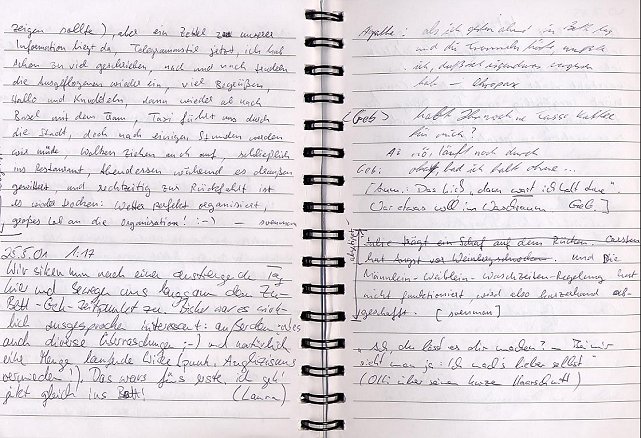 zeigen sollte), aber ein Zettel zu unserer
Information liegt da, Telegrammstil jetzt, ich hab
schon zu viel geschrieben, nach und nach trudeln
die Ausgeflogenen wieder ein, viel Begrüßen,
Hallo und Knuddeln, dann wieder ab nach
Basel mit dem Tram, Taxi führt uns durch
die Stadt, doch nach einigen Stunden werden
wir müde, Wolken ziehen auch auf, schließlich
ins Restaurant, Abendessen während es draußen
gewittert, und rechtzeitig zur Rückfahrt ist
es wieder trocken: Wetter perfekt organisiert,
großes Lob an die Organisation! :-) svenman
25.5.01 1:17
Wir sitzen nun nach einer
hier und bewegen uns langsam dem Zu-
Bett-Geh-Zeitpunkt zu. Bisher war es wirk-
lich ausgesprochen interessant: außerdem
auch diverse Überraschungen ;-) und natürlich
eine Menge laufende Witze (puuh, Anglizismus
vermieden!). Das wars fürs erste, ich geh'
jetzt gleich ins Bett! (Laura)
Agathe: als ich gestern abend im Bett lag
und die
ich, daß ich irgendetwas vergessen
hab – Ohropax
(Geb) habt Ihr noch ne Tasse Kaffee
für mich?
A: nö, läuft noch durch
Geb: hab ich halt ohne...
[Anm.: Das hieß "dann wart ich halt ohne".
War etwas voll im Geb]
abstrakt
trägt ein Schaf auf dem Rücken. Carsten
hat Angst vor und Die
Männlein-Weiblein-Waschzeiten-Regelung hat
nicht funktioniert, wird also kurzerhand ab-
geschafft. [svenman]
"Ah, du lässt es dir machen? – Bei mir
sieht man ja: Ich mach's lieber selbst"
(Olli über seinen kurzen Haarschnitt)